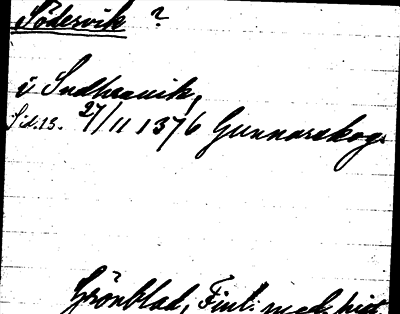 Södervik ?
i Sudhrauik,
Sid. 13. 27/11 1376 Gunnarskog.
Grönblad, Finl: med. hist